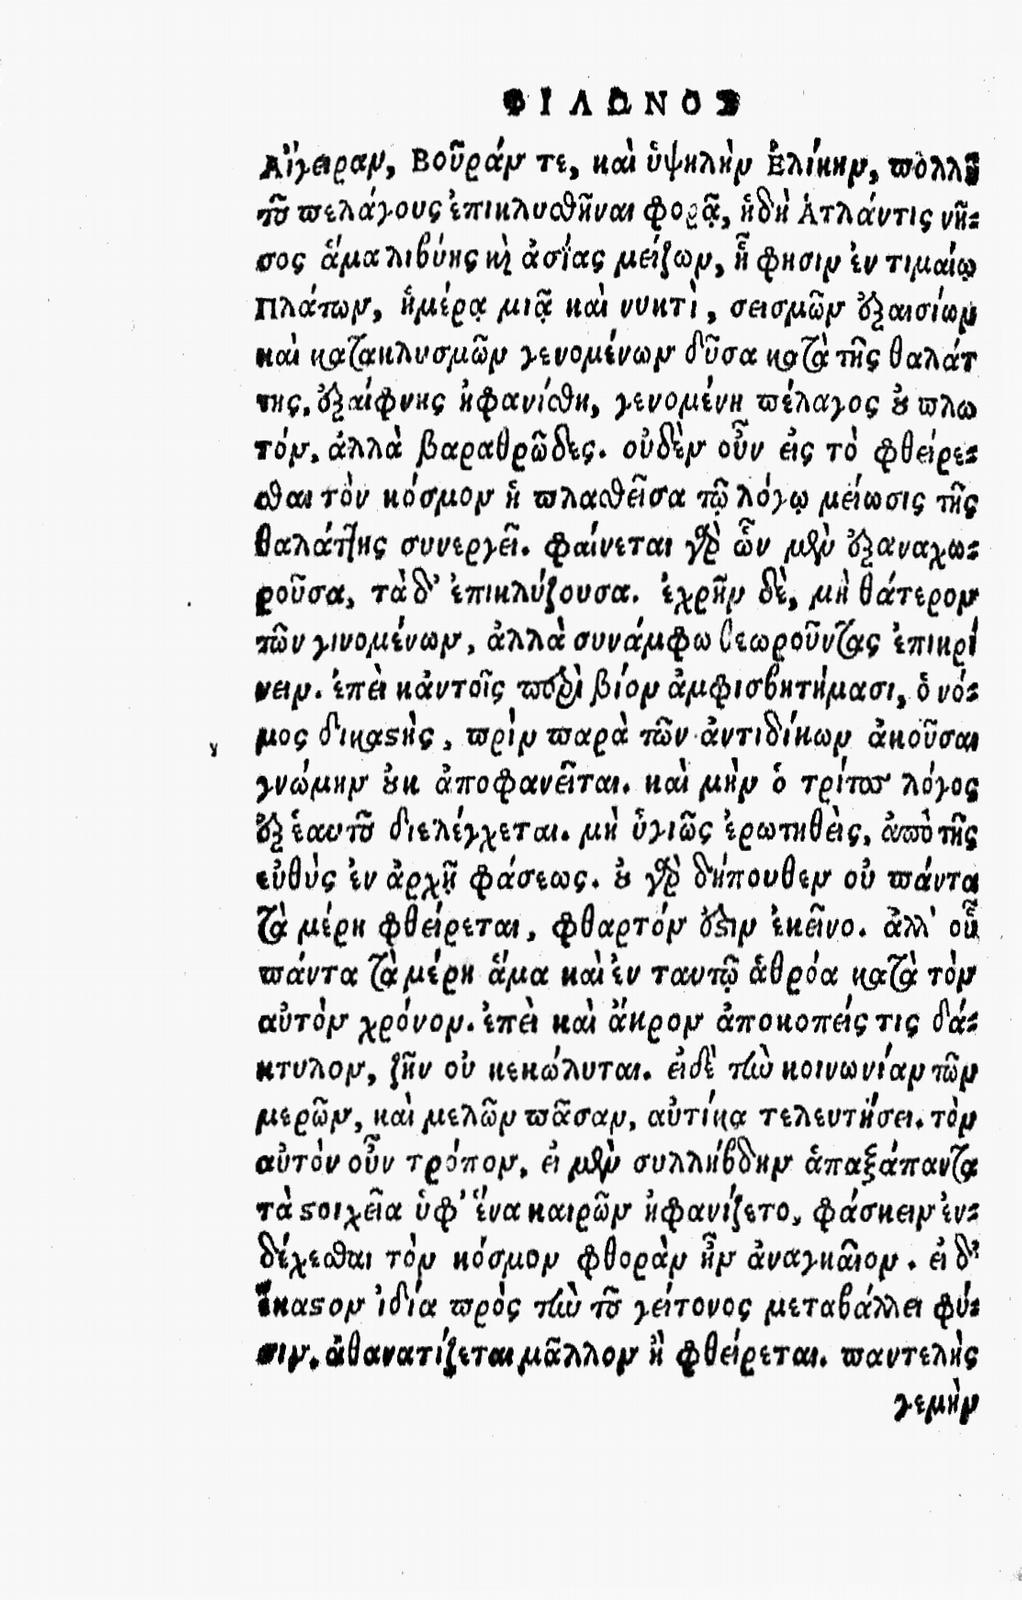 ΦΙΛΩΝΟΣ
Αἴγειραν, Βοῦράν τε, καὶ ὑψηλὴν Ἑλίκην, πολλῇ
τοῦ πελάγους ἐπικλυσθῆναι φορᾷ, ἡδὴ Ἀτλάντις νῆ-
σος ἅμα λιβύης καὶ ἀσίας μείζων, ᾗ φησιν ἐν τιμαίῳ
Πλάτων, ἡμέρᾳ μιᾷ καὶ νυκτὶ, σεισμῶν ἐξαισίων
καὶ κατακλυσμῶν γενομένων δῦσα κατὰ τῆς θαλάτ
της, ἐξαίφνης ἠφανίσθη, γενομένη πέλαγος οὐ πλω
τόν, ἀλλὰ βαραθρῶδες. οὐδὲν οὖν εἰς τὸ φθείρε-
σθαι τὸν κόσμον ἡ πλασθεῖσα τῷ λόγῳ μείωσις τῆς
θαλάττης συνεργεῖ. φαίνεται γὰρ ὧν μὲν ἐξαναχω-
ροῦσα, τὰ δ' ἐπικλύζουσα. ἐχρῆν δὲ, μὴ θάτερον
τῶν γινομένων, ἀλλὰ συνάμφω θεωροῦντας ἐπικρί
νειν. ἐπεὶ κἀντοῖς περὶ βίον ἀμφισβητήμασι, ὁ νό-
μος δικαστὴς, πρὶν παρὰ τῶν ἀντιδίκων ἀκοῦσαι
γνώμην οὐκ ἀποφανεῖται. καὶ μὴν ὁ τρίτος λόγος
ἐξ ἑαυτοῦ διελέγχεται. μὴ ὑγιῶς ἐρωτηθεὶς, ἀπὸ τῆς
εὐθὺς ἐν ἀρχῇ φάσεως. οὐ γὰρ δήπουθεν οὗ πάντα
τὰ μέρη φθείρεται, φθαρτόν ἐστιν ἐκεῖνο. ἀλλ' οὗ
πάντα τὰ μέρη ἅμα καὶ ἐν ταυτῷ ἀθρόα κατὰ τὸν
αὐτὸν χρόνον. ἐπεὶ καὶ ἄκρον ἀποκοπείς τις δά-
κτυλον, ζῆν οὐ κεκώλυται. εἰδὲ τὴν κοινωνίαν τῶν
μερῶν, καὶ μελῶν πᾶσαν, αὐτίκα τελευτήσει. τὸν
αὐτὸν οὖν τρόπον, εἰ μὲν συλλήβδην ἁπαξάπαντα
τὰ στοιχεῖα ὑφ' ἕνα καιρῶν ἠφανίζετο, φάσκειν ἐν-
δέχεσθαι τὸν κόσμον φθορὰν ἦν ἀναγκαῖον. εἰ δ'
ἕκαστον ἰδία πρὸς τὴν τοῦ γείτονος μεταβάλλει φύ-
σιν, ἀθανατίζεται μᾶλλον ἢ φθείρεται. παντελὴς
γεμὴν